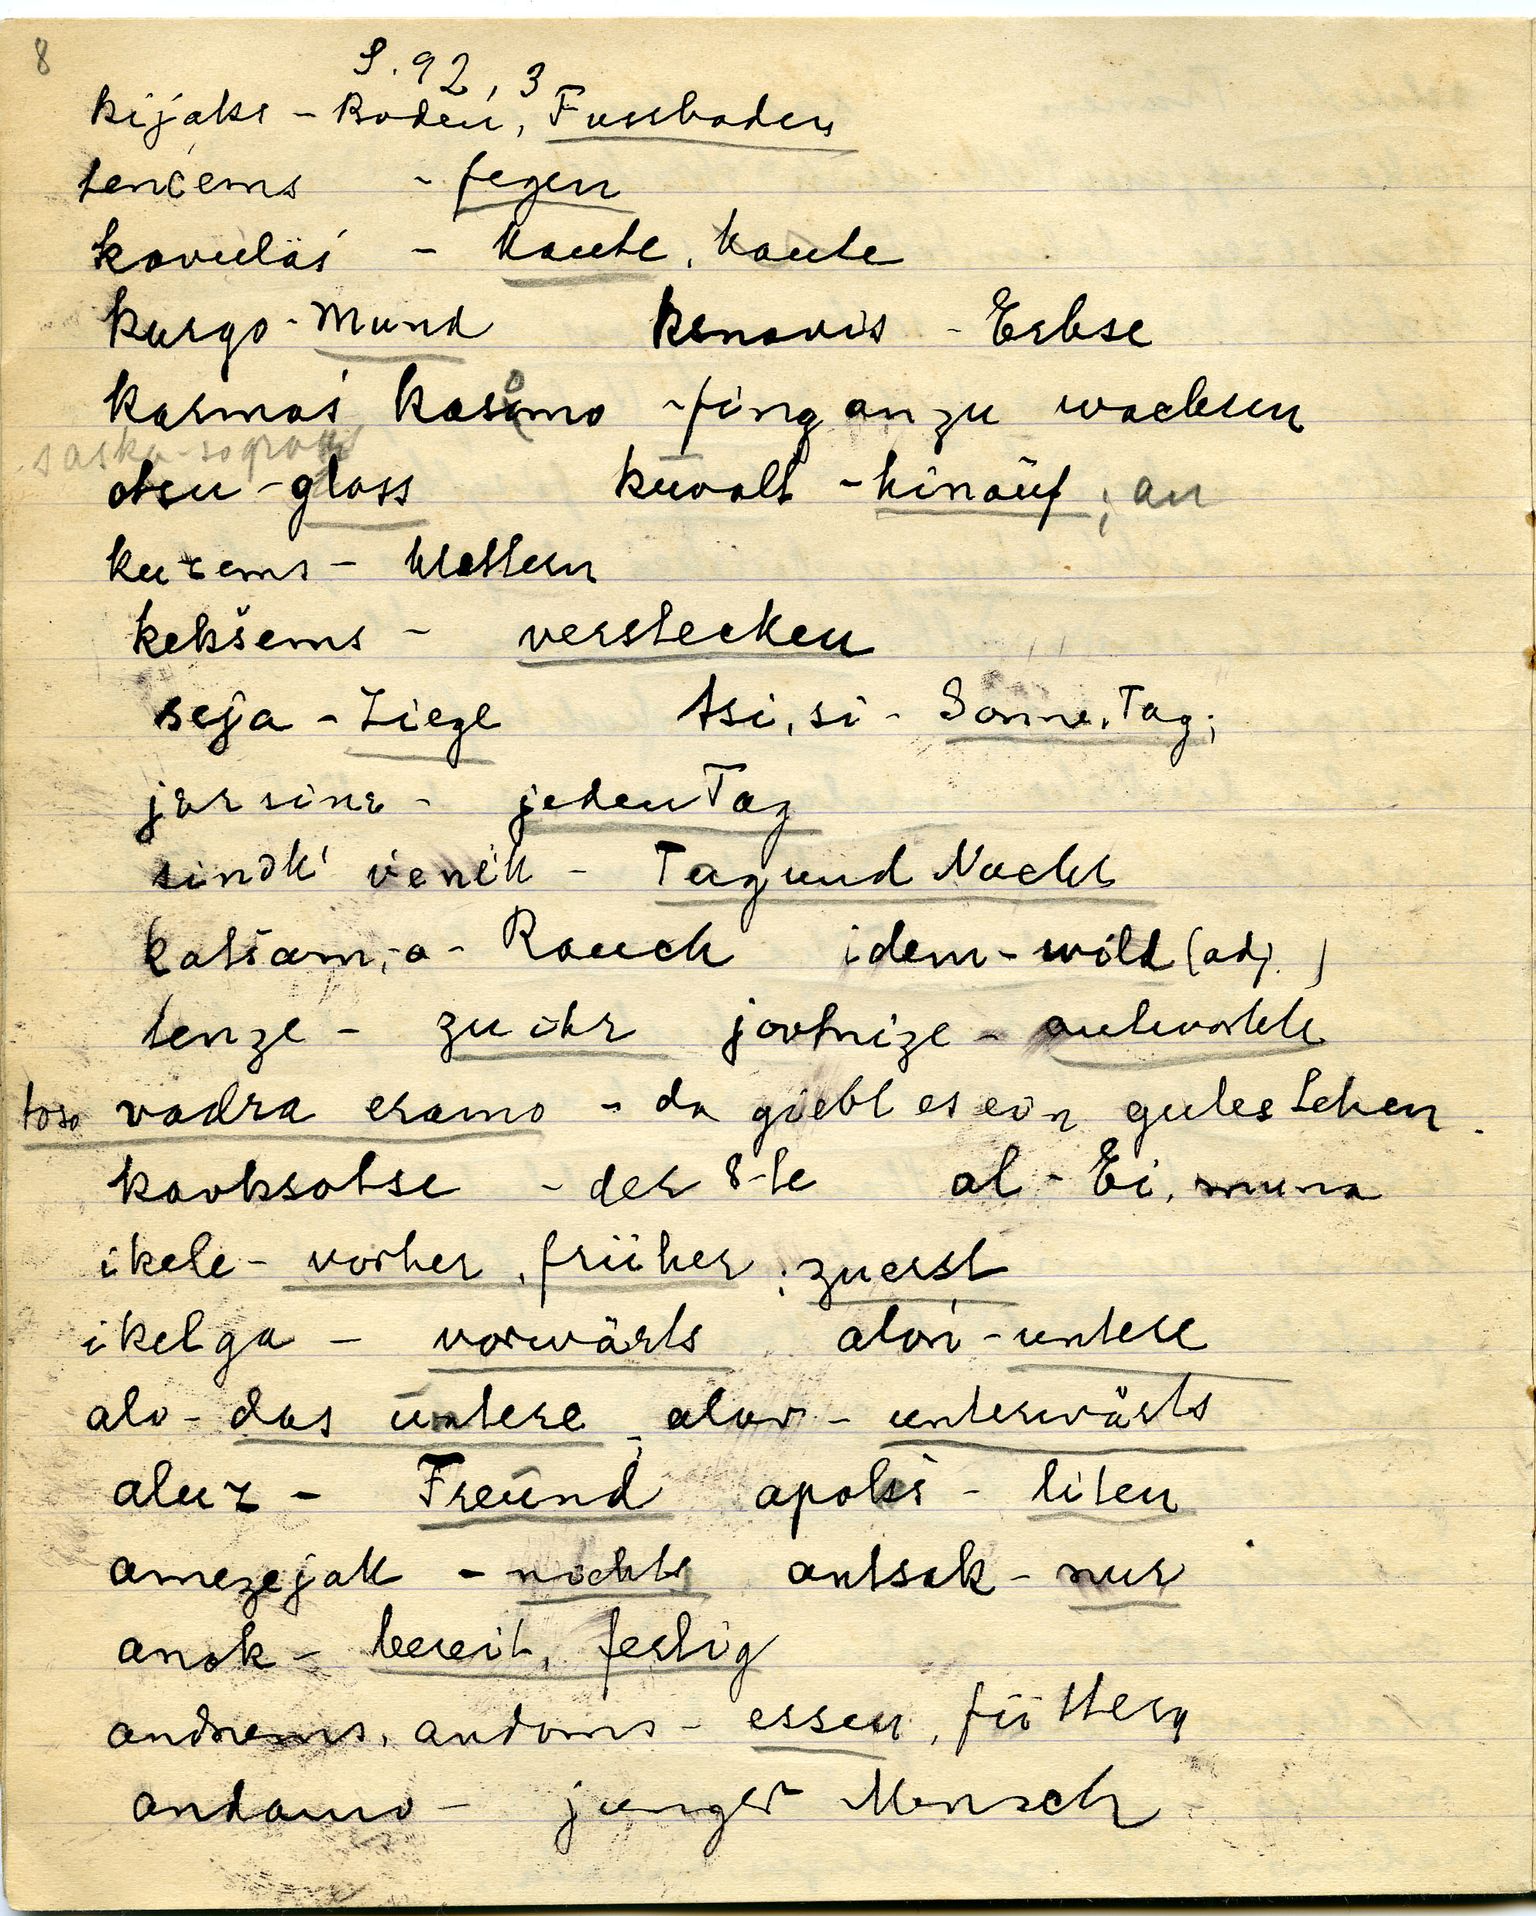 8
S. 92, 3
kijaks - Boden, Fussboden
tenćems - fegen
kovuläś - kaute, kaute
kurgo - Mund ksnavis - Erbse
karmaś kasomo - fing an zu wachsen
saska-
otsu - gross kuvalt - hinauf; an
kuzems - klettern
kekšems - verstecken
seja - Ziege tsi, si - Sonne, Tag;
jer sine - jeden Tag
venik - Tag und Nacht
katsam, -a - Rauch idem - wild (adj.)
tenze - zu ihr jovtnize - antwortete
toso vadra eramo - da giebt es ein gutes Leben.
kavksotse - der 8-te al - Ei, muna
ikele - vorher, früher; zuerst
ikelga - vorwärts aloń - untere
alo - das untere; alov - unterwärts
aluz - Freund apokś - liten
amezejak - nichts antsak - nur
anok - bereit, fertig
andnems, andoms - essen, füttern
andamo - junger Mensch